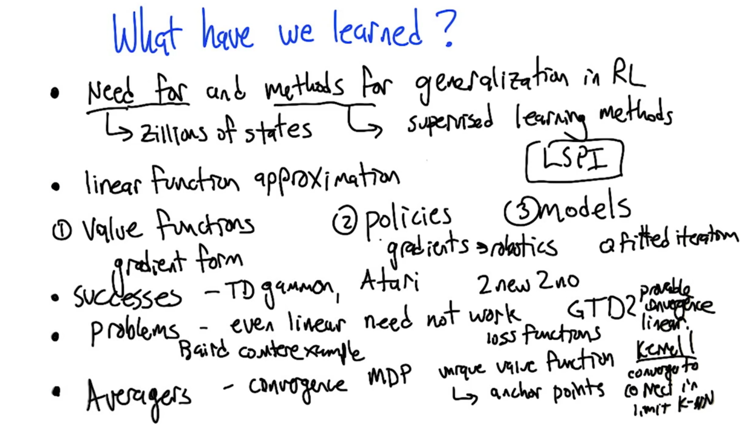 What have we learned?
• Need for and methods for generalization in RL
↳ zillions of states ↳ supervised learning methods
LSPI
• linear function approximation
① value functions ② policies ③ models
gradient form gradients → robotics Q fitted iteration
• successes - TD gammon, Atari 2 new 2 no
• problems - even linear need not work GTD2 provable convergence linear
Baird counterexample loss functions
• Averagers - convergence MDP unique value function
↳ anchor points
Kernel!
converge to
correct in
limit K-NN